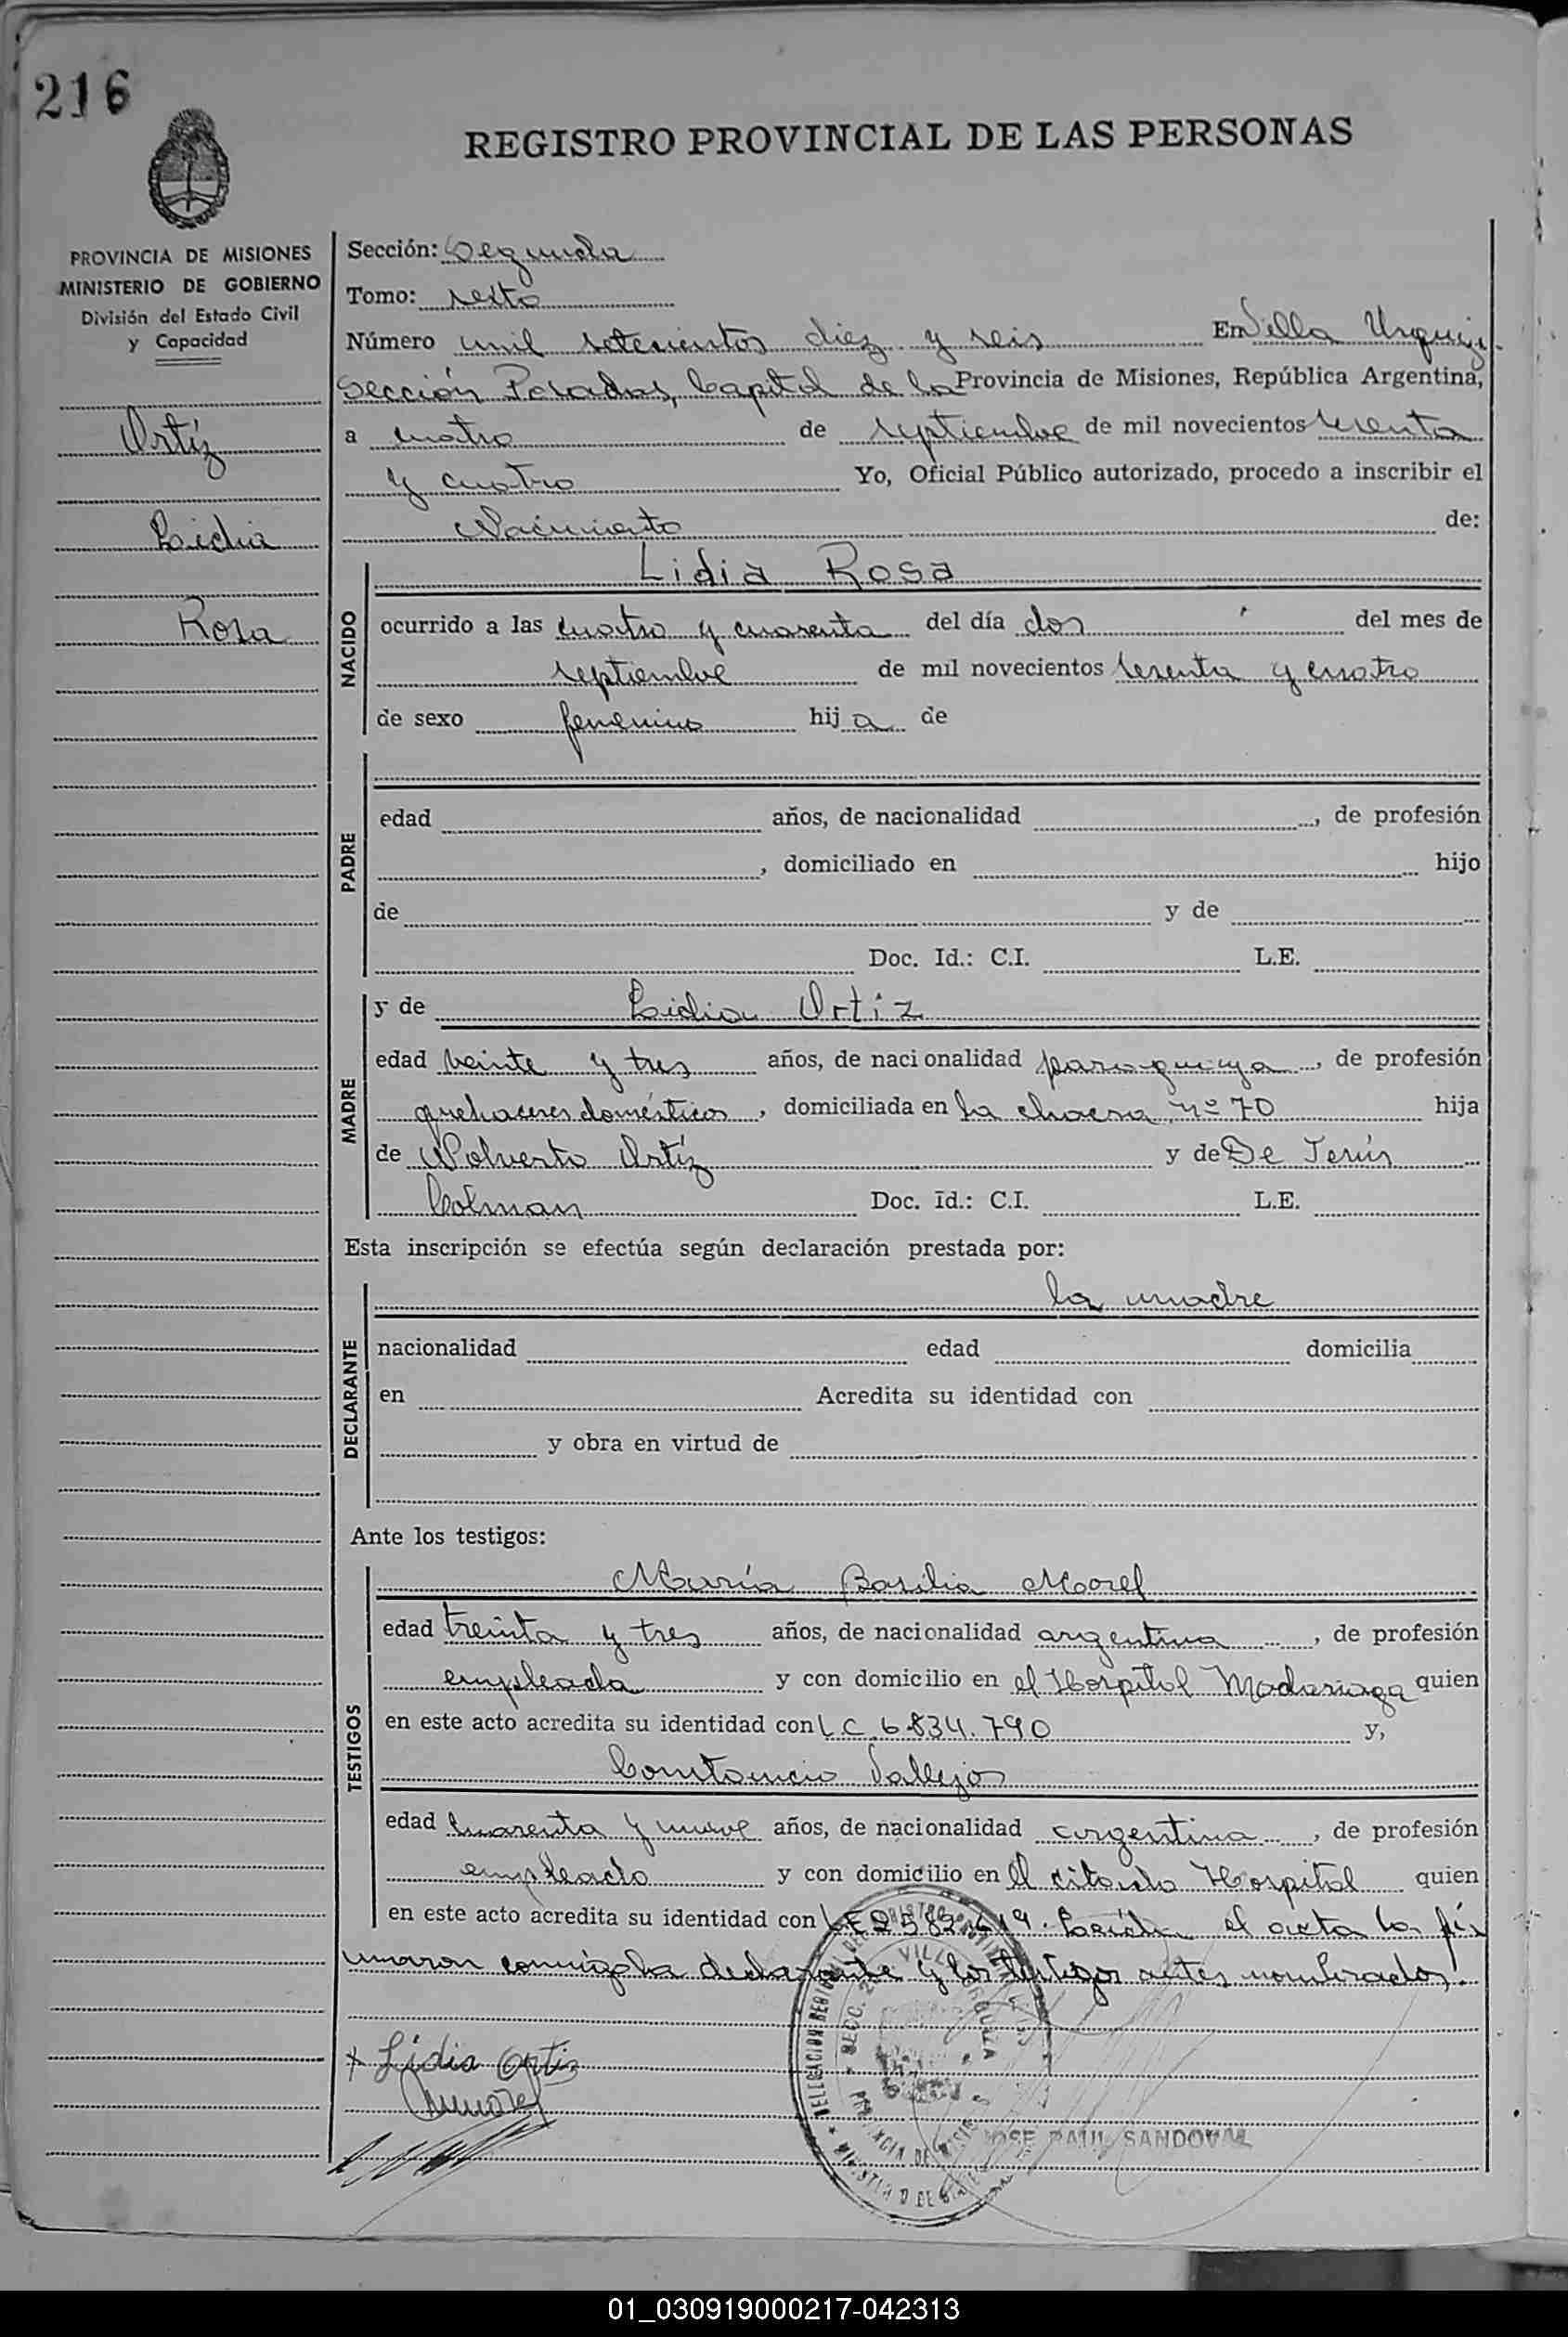 216
REGISTRO PROVINCIAL DE LAS PERSONAS
PROVINCIA DE MISIONES
MINISTERIO DE GOBIERNO
División del Estado Civil
y Capacidad
Ortíz
Lidia
Rosa
Sección: Segunda
Tomo: sexto
Número mil setecientos diez y seis En Villa Urquiza
Sección Posadas, Capital de la Provincia de Misiones, República Argentina,
a cuatro de septiembre de mil novecientos sesenta
y cuatro Yo, Oficial Público autorizado, procedo a inscribir el
Nacimiento de:
NACIDO
Lidia Rosa
ocurrido a las cuatro y cuarenta del día dos del mes de
septiembre de mil novecientos sesenta y cuatro
de sexo femenino hija de
PADRE
edad años, de nacionalidad , de profesión
, domiciliado en hijo
de y de
Doc. Id.: C.I. L.E.
MADRE
y de Lidia Ortiz
edad veinte y tres años, de nacionalidad paraguaya, de profesión
quehaceres domésticos, domiciliada en la chacra nº 70 hija
de Nolverto Ortíz y de De Jesús
Colman Doc. Id.: C.I. L.E.
Esta inscripción se efectúa según declaración prestada por:
DECLARANTE
la madre
nacionalidad edad domicilia
en Acredita su identidad con
y obra en virtud de
Ante los testigos:
TESTIGOS
María Basilia Morel
edad treinta y tres años, de nacionalidad argentina, de profesión
empleada y con domicilio en el Hospital Madariaga quien
en este acto acredita su identidad con L C 6.834.790 y,
Constancio Vallejos
edad cuarenta y nueve años, de nacionalidad argentina, de profesión
empleado y con domicilio en el citado Hospital quien
en este acto acredita su identidad con LE 2582.419. Leída el acta la fir
maron conmigo la declarante y los testigos antes nombrados.
Lidia Ortiz
JOSE RAUL SANDOVAL
01_030919000217-042313